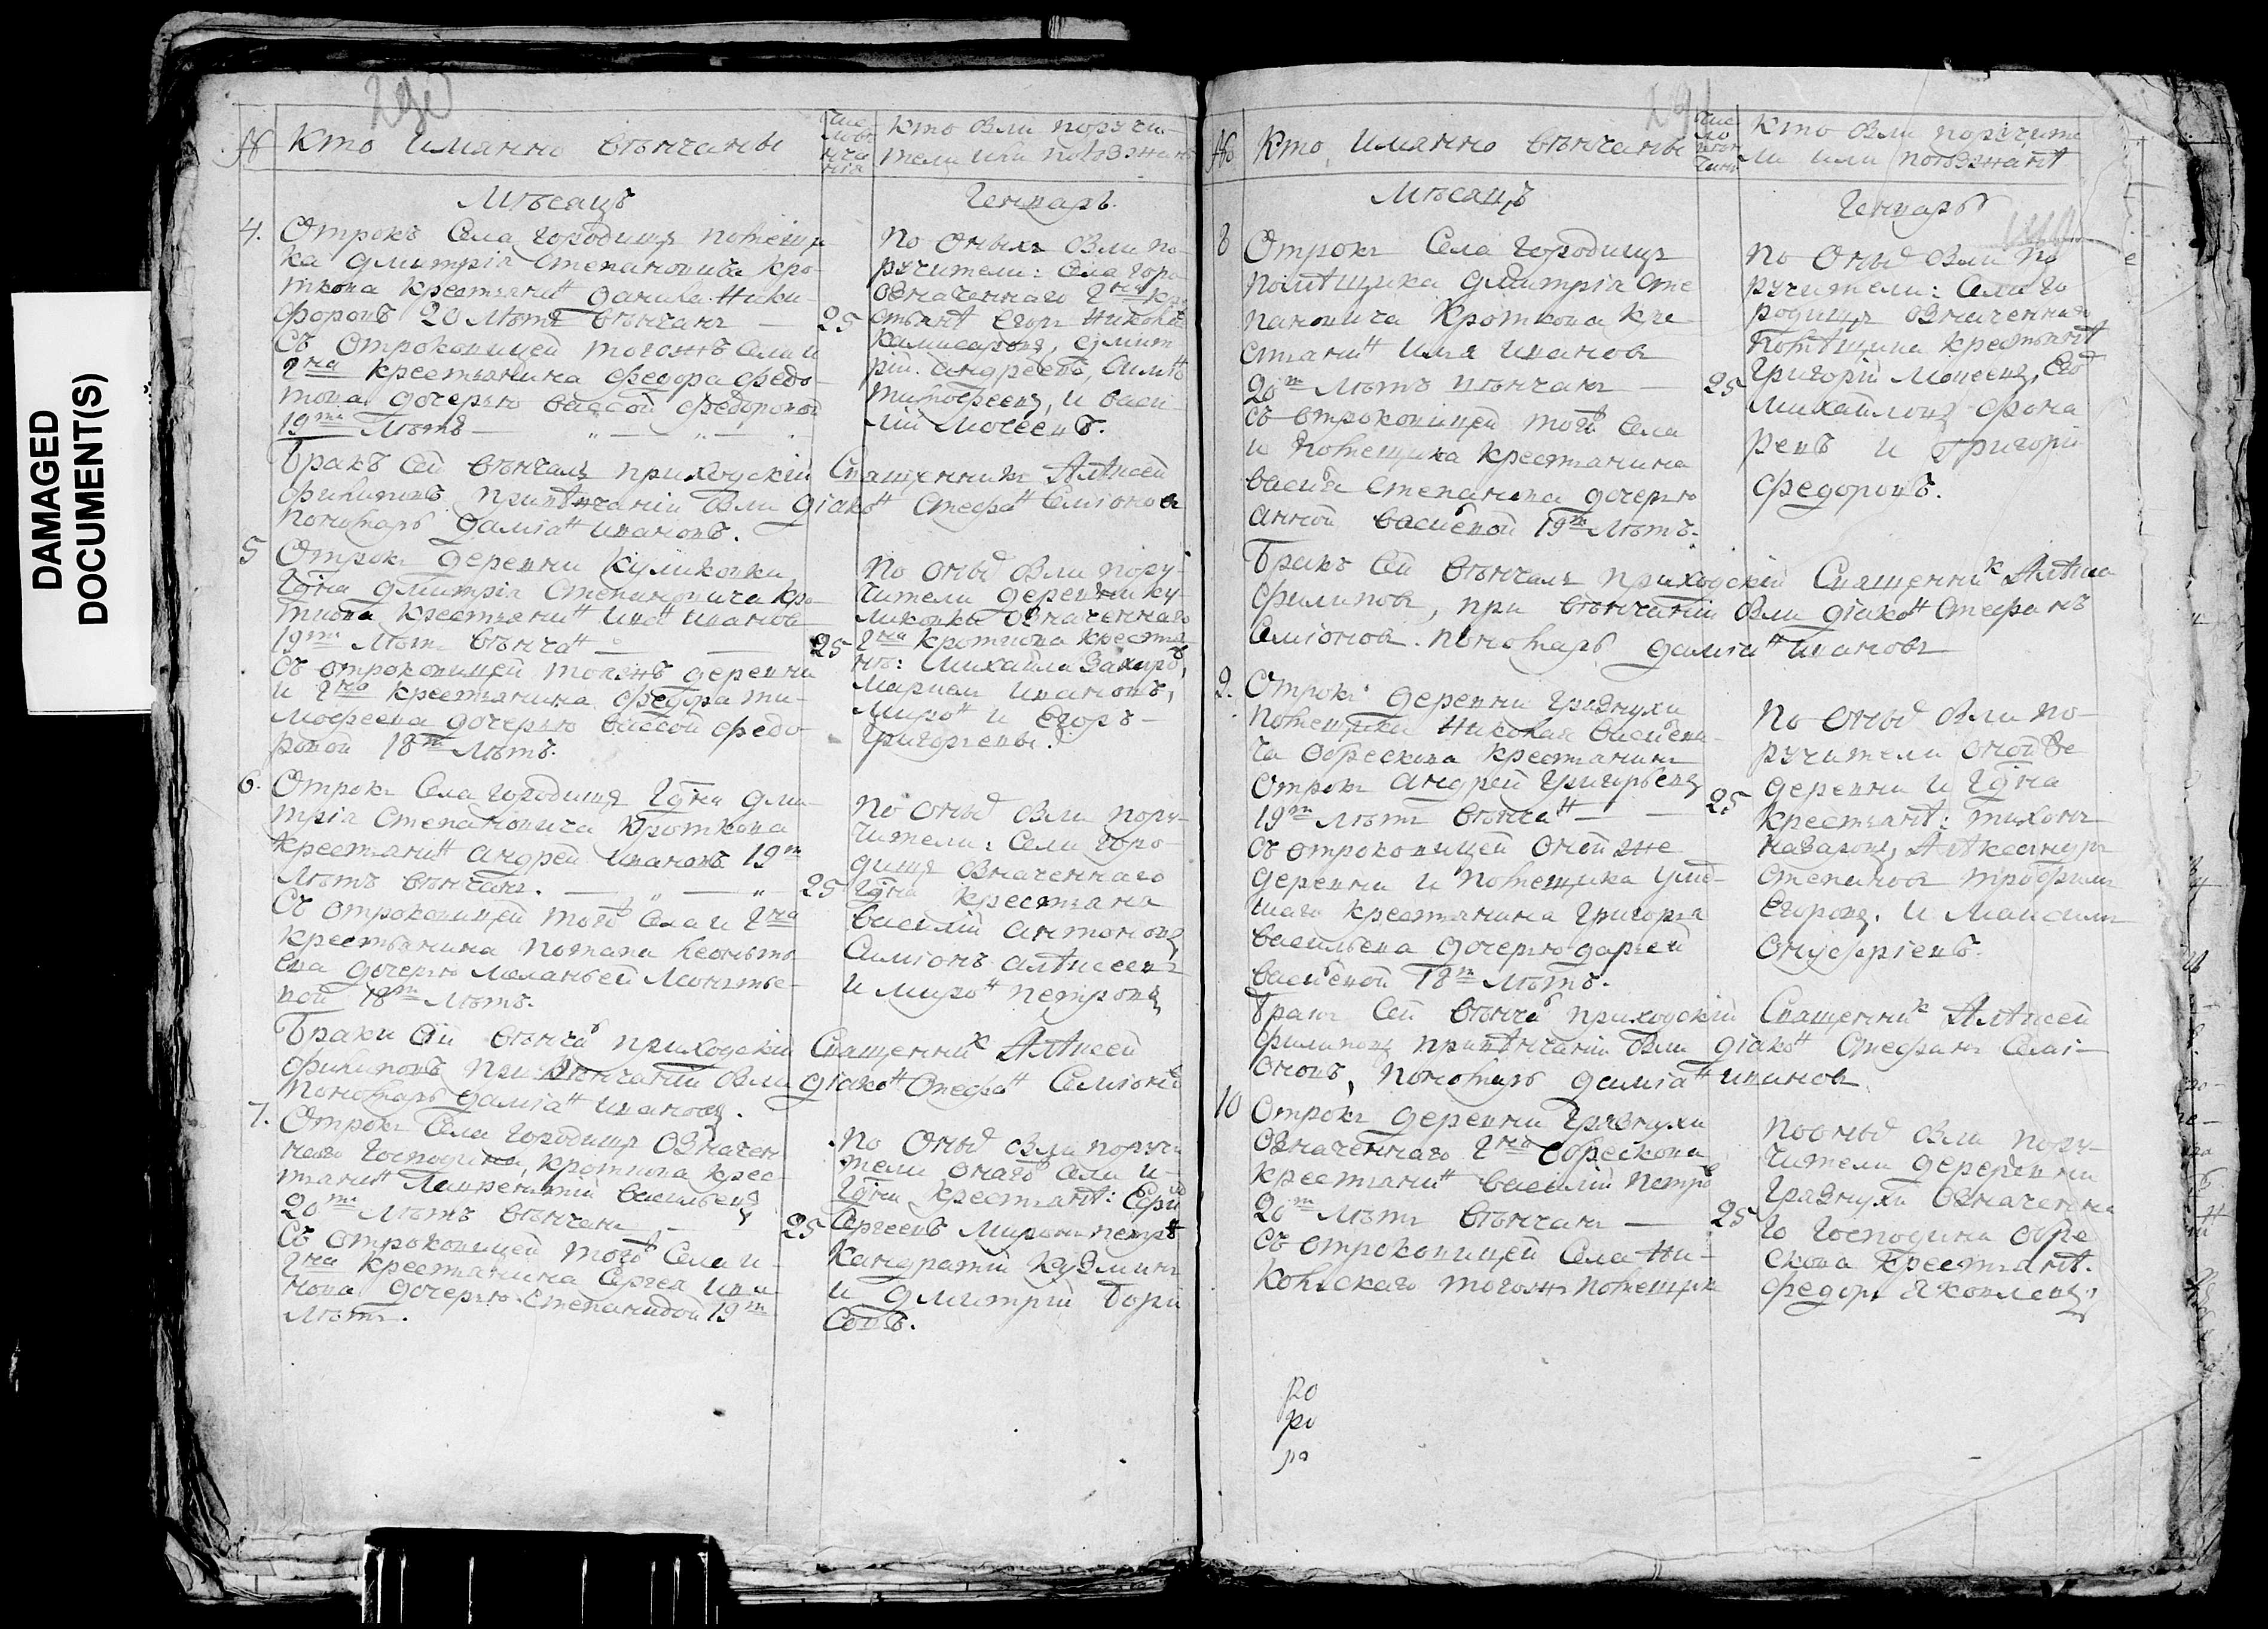 DAMAGED
DOCUMENT(S)
№ Кто имянно венчаны
Кто были поручи-
тели или поезжане
Мѣсяцъ Генварь
4. Отрокъ Села Городищъ помещи
ка Дмитрія Степановича Кро-
ткова крестьянинъ Данила Ники-
форовъ 20 лѣтъ венчанъ — 25
Съ отроковицей тогожъ села и
гдна крестьянина Федора Федо-
това дочерью Вассой Федоровой
19ти лѣтъ
По оныхъ были по-
ручители: Села Горо
означеннаго гдна кре
стьянѣ Егоръ
Дмит
рій Андреевъ,
Тимофеевъ, и Васи-
лій Мосеевъ.
Бракъ сей венчалъ приходскій Священникъ Алѣксей
Филиповъ при венчаніи были діаконъ Стефанъ Симіоновъ
Пономарь Даміанъ Ивановъ.
5 Отрокъ деревни Куликовки
Гдна Дмитрія Степановича Кро-
ткова крестьянинъ Иванъ Ивановъ
19ти лѣтъ венчанъ — 25
Съ отроковицей тоежъ деревни
и гдна крестьянина Федора Ти-
мофеева дочерью Вассой Федо-
ровой 18ти лѣтъ.
По оныхъ были пору-
чители деревни Ку-
ликовки означеннаго
гдна Кроткова крестья
не: Михайла Захаровъ,
Ивановъ,
Миронъ и Егоръ —
Григорьевы.
6. Отрокъ Села Городищъ Гдна Дми-
трія Степановича Кроткова
крестьянинъ Андрей Ивановъ 19ти
лѣтъ венчанъ. — 25
Съ отроковицей того Села и гдна
крестьянина Потапа Леонтье-
ва дочерью Маланьей
вой 18ти лѣтъ.
По оныхъ были пору-
чители: Села Горо-
дищъ означеннаго
Гдна крестьяна
Василій Антоновъ
Симіонъ Алѣксеевъ
и Миронъ Петровъ
Браки сіи венчалъ приходскій Священникъ Алѣксей
Филиповъ при венчаніи были діаконъ Стефанъ Симіоновъ
Пономарь Даміанъ Ивановъ.
7. Отрокъ Села Городищъ означен
наго Господина Кроткова крес-
тьянинъ Лаврентій Васильевъ
20ти лѣтъ венчанъ — 25
Съ отроковицей того Села и
гдна крестьянина Сергея Ива
нова дочерью Степанидой 19ти
лѣтъ.
По оныхъ были поручи
тели онаго Села и
Гдна крестьянѣ:
Сергеевъ Миронъ Петровъ
Кандратій Кузминъ
и Дмитрій Бори
совъ.
№ Кто имянно венчаны
Кто были поручите
ли или поезжанѣ
Мѣсяцъ Генварь
8 Отрокъ Села Городищъ
помѣщика Дмитрія Сте
пановича Кроткова кре
стьянинъ Илья Ивановъ
20ти лѣтъ венчанъ — 25
Съ отроковицей того Села
и помещика крестьянина
Василья Степанова дочерью
Анной Васильевой 19ти лѣтъ.
По оныхъ были по
ручители: Села Го
родищъ означеннаго
помѣщика крестьянѣ
Григорій Моисеевъ,
Михайловъ
и Григорій
Федоровъ.
Бракъ сей венчалъ приходскій Священникъ Алѣксей
Филиповъ, при венчаніи были діаконъ Стефанъ
Симіоновъ. Пономарь Даміанъ Ивановъ
9. Отрокъ деревни Грязнухи
помещика Николая Васильеви
ча Обрескова крестьянинъ
Отрокъ Андрей Григорьевъ
19ти лѣтъ венчанъ — 25
Съ отроковицей оной же
деревни и помещика
крестьянина Григорья
Васильева дочерью Дарьей
Васильевой 18ти лѣтъ.
По оныхъ были по-
ручители оной же
деревни и Гдна
крестьянѣ: Тихонъ
Назаровъ, Алѣксандръ
Степановъ Трофимъ
Егоровъ. и Максимъ
Онуфріевъ.
Бракъ сей венчалъ приходскій Священникъ Алѣксей
Филиповъ при венчаніи были діаконъ Стефанъ Симі-
оновъ, Пономарь Даміанъ Ивановъ
10 Отрокъ деревни Грязнухи
означеннаго гдна Обрескова
крестьянинъ Василій Петровъ
20ти лѣтъ венчанъ — 25
Съ отроковицей Села Ни-
кольскаго тогожъ помещика
По оныхъ были пору-
чители деревни
Грязнухи означенна
го Господина Обре
скова крестьянѣ.
Федоръ Яковлевъ,
ро
ро
ро